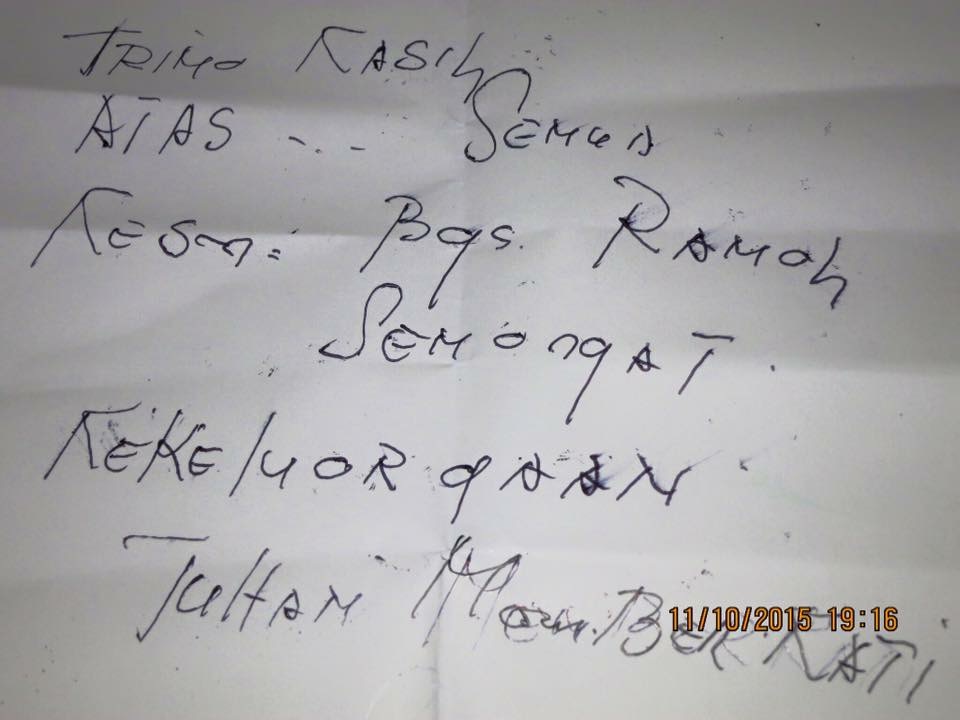 TRIMA KASIh
ATAS ... SEMUA
KESAn: Bgs. RAMAh
SEMANgAT.
KEKELUARgAAN.
TUHAN MEMBERKATI
11/10/2015 19:16